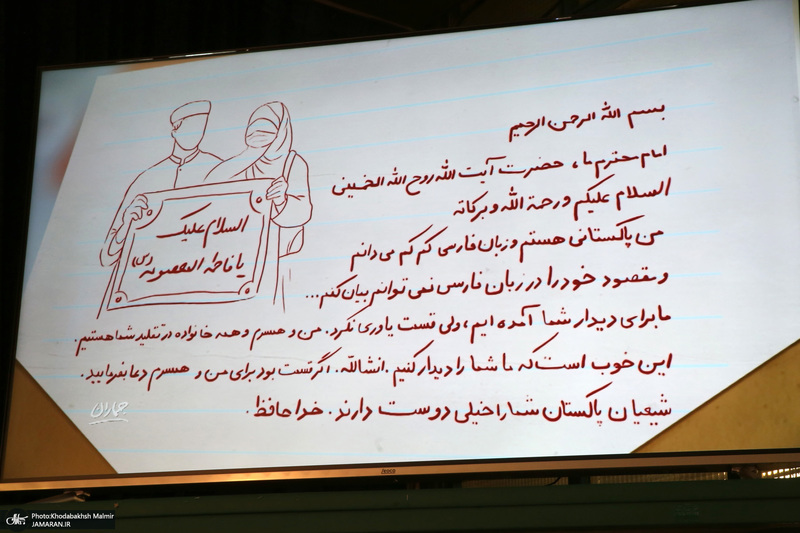 بسم الله الرحمن الرحیم
امام محترم ما، حضرت آیت الله روح الله الخمینی
السلام علیکم ورحمة الله و برکاته
من پاکستانی هستم و زبان فارسی کم کم می دانم
و مقصود خود را در زبان فارسی نمی توانم بیان کنم...
ما برای دیدار شما آمده ایم، ولی قسمت یاوری نکرد. من و همسرم و همه خانواده در تقلید شما هستیم.
این خوب است که ما شما را دیدار کنیم. انشاالله. اگر قسمت بود برای من و همسرم دعا بفرمایید.
شیعیان پاکستان شما را خیلی دوست دارند. خدا حافظ.
السلام علیک
یا فاطمة المعصومه (س)
جماران
Photo:Khodabakhsh Malmir
JAMARAN.IR